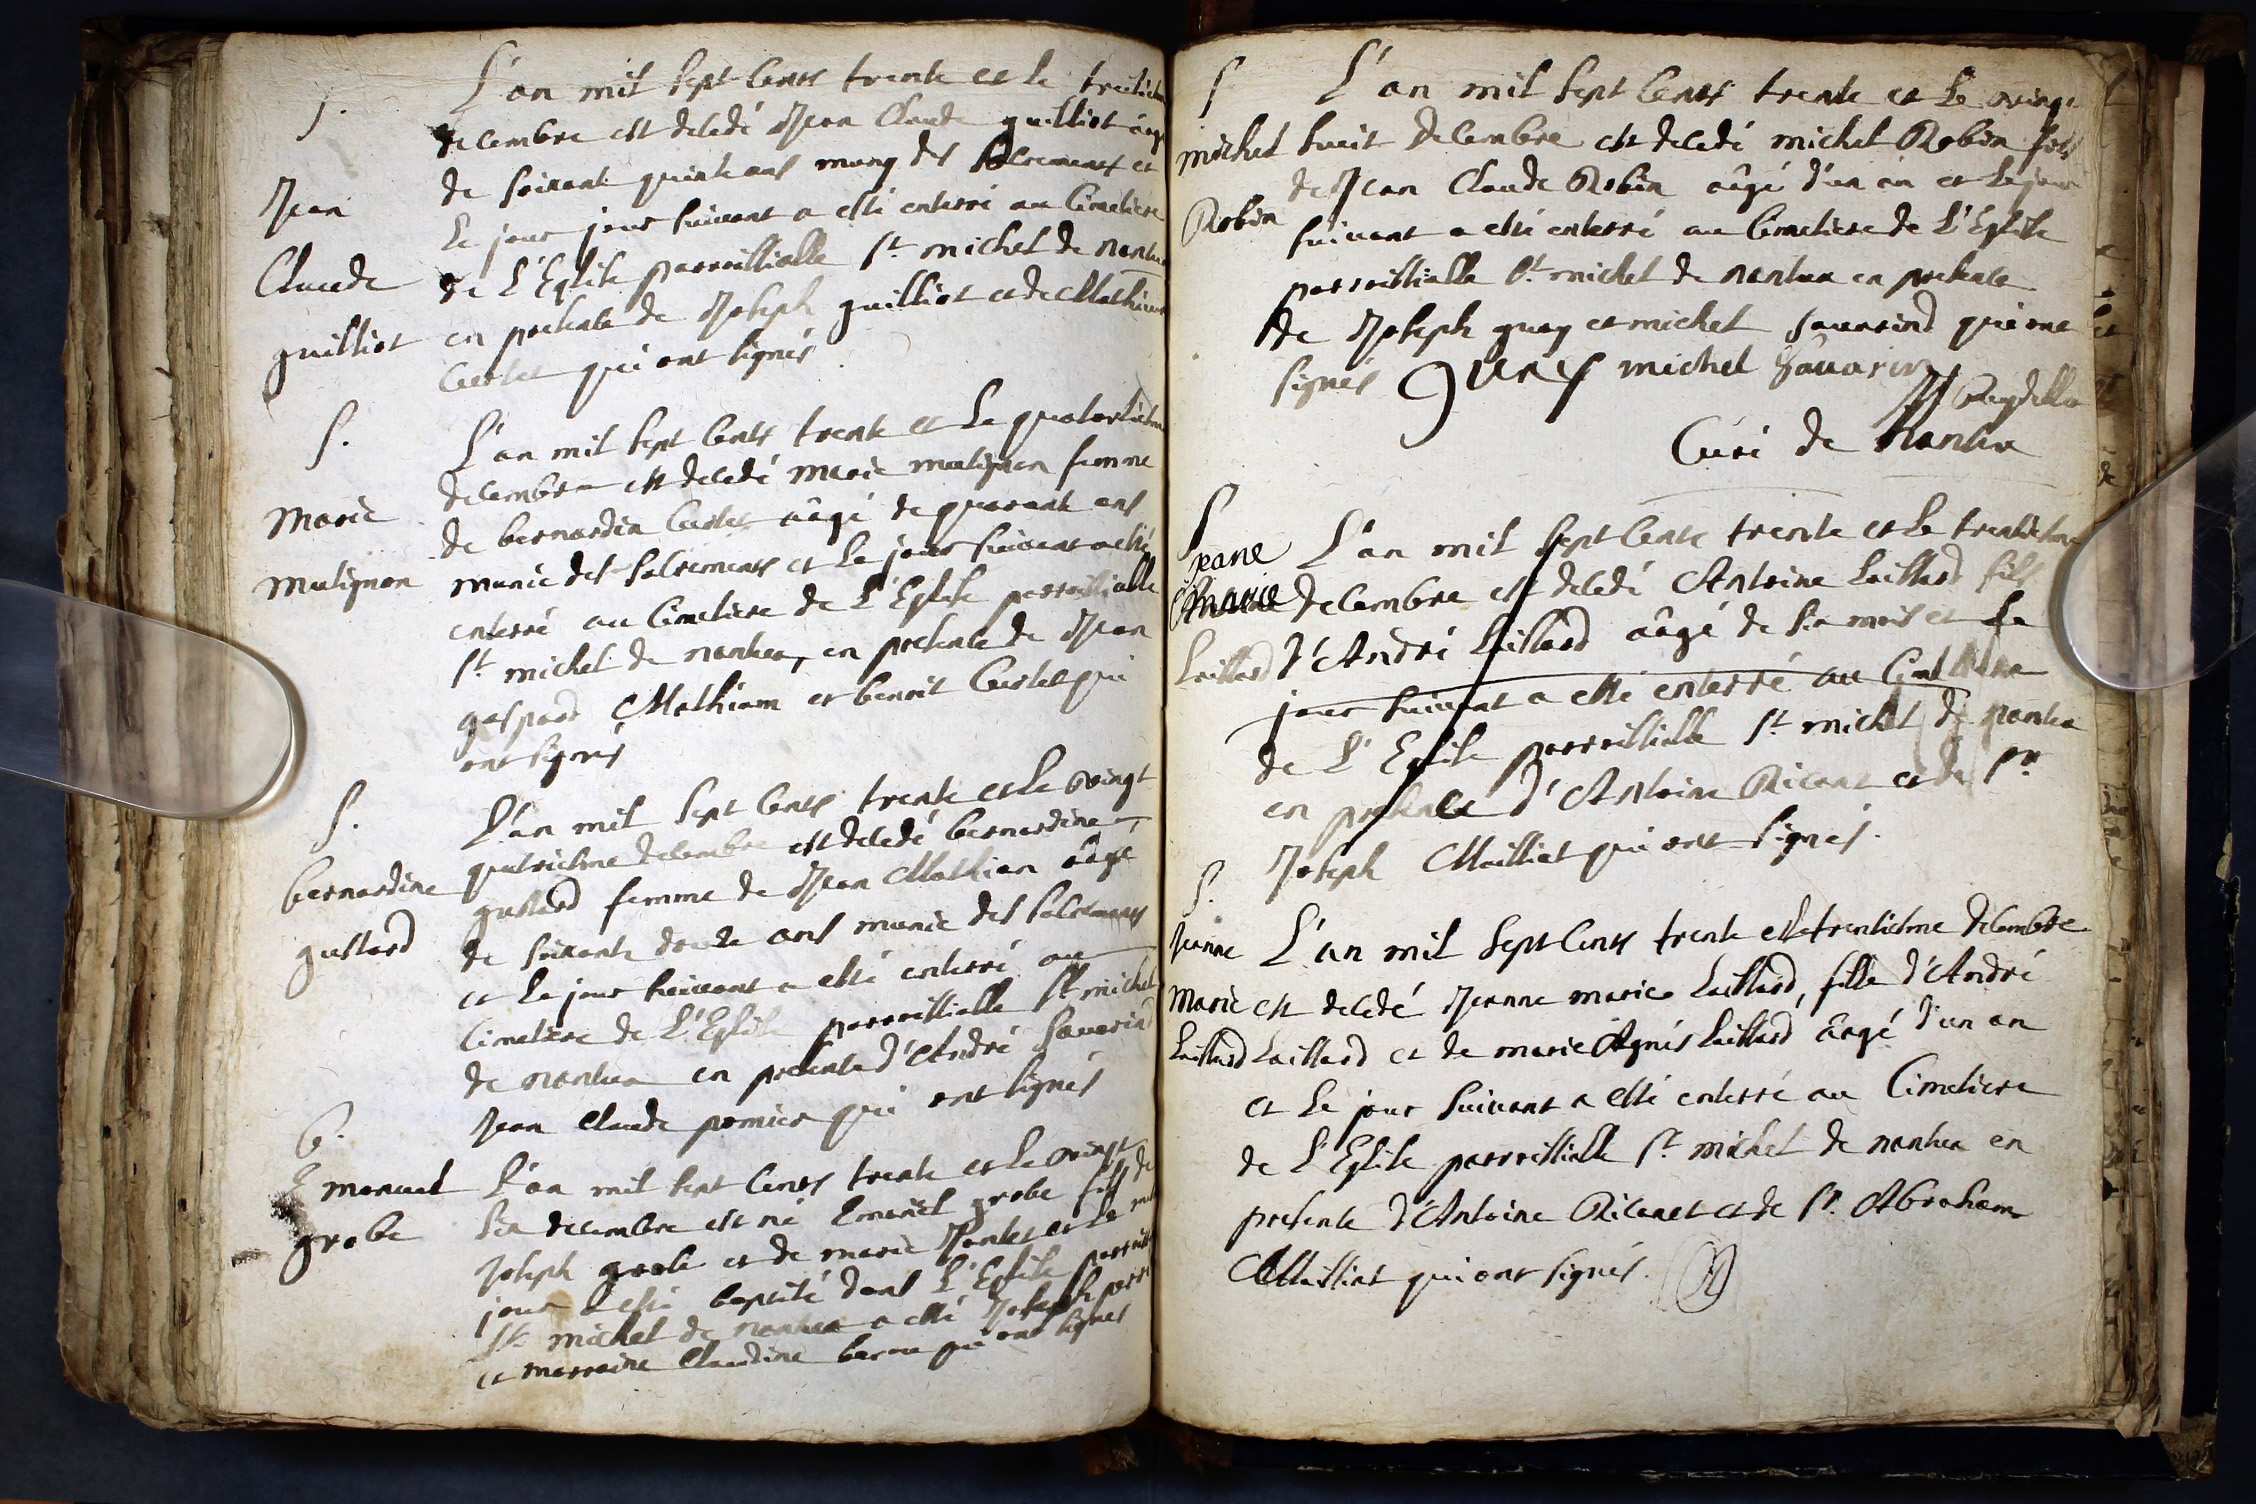 S.
L'an mil sept cents trente et le treisiesme
decembre est decedé Jean Claude guilliot aagé
Jean
de soixante quinze ans muny des sacrements et
le jour jour suivant a esté enterré au Cimetiere
Claude
de l'Eglise parroissialle St. michel de nantua
guilliot
en presence de Joseph guilliot et de Mathieu
qui ont signés
S.
L'an mil sept cents trente et le quatorsiesme
decembre est decedé marie mulignon femme
Marie
de bernardin âagé de quarante ans
mulignon
munie des sacrements et le jour suivant a esté
enterré au Cimetiere de l'Eglise parroissialle
St. michel de nantua, en presence de Jean
gaspard Mathieu et benoit qui
ont signés
S.
L'an mil sept cents trente et le vingt
quatriesme decembre est decedé bernardine
bernardine
gustard femme de Jean Mathieu âagé
gustard
de soixante douze ans munie des sacrements
et le jour suivant a esté enterré au
Cimetiere de l'Eglise parroissialle St michel
de nantua en presence d'André Savarin
Jean Claude pomier qui ont signés
b.
Emanuel
L'an mil sept cents trente et le vingt
grobe
six decembre est né Emanuel grobe fils de
Joseph grobe et de marie et le
jour a esté baptisé dans l'Eglise
St. michel de nantua a esté Joseph
et marraine Claudine qui ont signés
S
L'an mil sept cents trente et le vingt
michel
huit decembre est decedé michel Robin fils
Robin
de Jean Claude Robin âagé d'un an et le jour
suivant a esté enterré au Cimetiere de l'Eglise
parroissialle St. michel de nantua en presence
de Joseph guey et michel savarind qui ont
signés guey michel Savarin
Curé de nantua
S
Jeane
L'an mil sept cents trente et le trentiesme
marie
decembre est decedé Antoine Laillard fils
Laillard
d'André Laillard âagé de six mois et le
jour suivant a esté enterré au Cimetiere
de l'Eglise parroissialle St. michel de nantua
en presence d'Antoine Ricant et de Sr.
Joseph Mailliat qui ont signés.
S.
Jeanne
L'an mil sept cents trente et le trentiesme decembre
Marie
est decedé Jeanne marie Laillard, fille d'André
Laillard
Laillard et de marie Agnés Laillard âagé d'un an
et le jour suivant a esté enterré au Cimetiere
de l'Eglise parroissialle St. michel de nantua en
presence d'Antoine Ricanet et de Sr. Abraham
Mailliat qui ont signés.